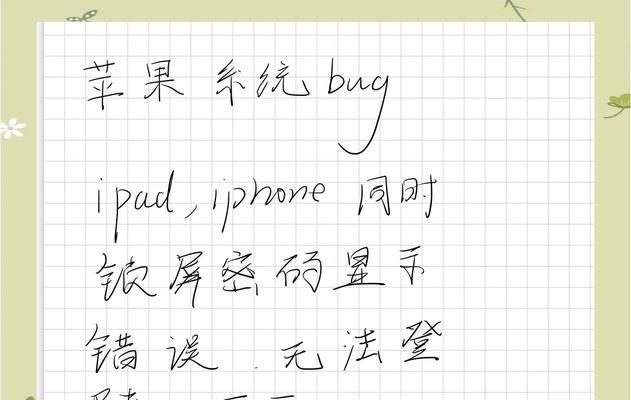 苹果系统bug
ipad,iphone 同时
锁屏密码显示
错误.无法登